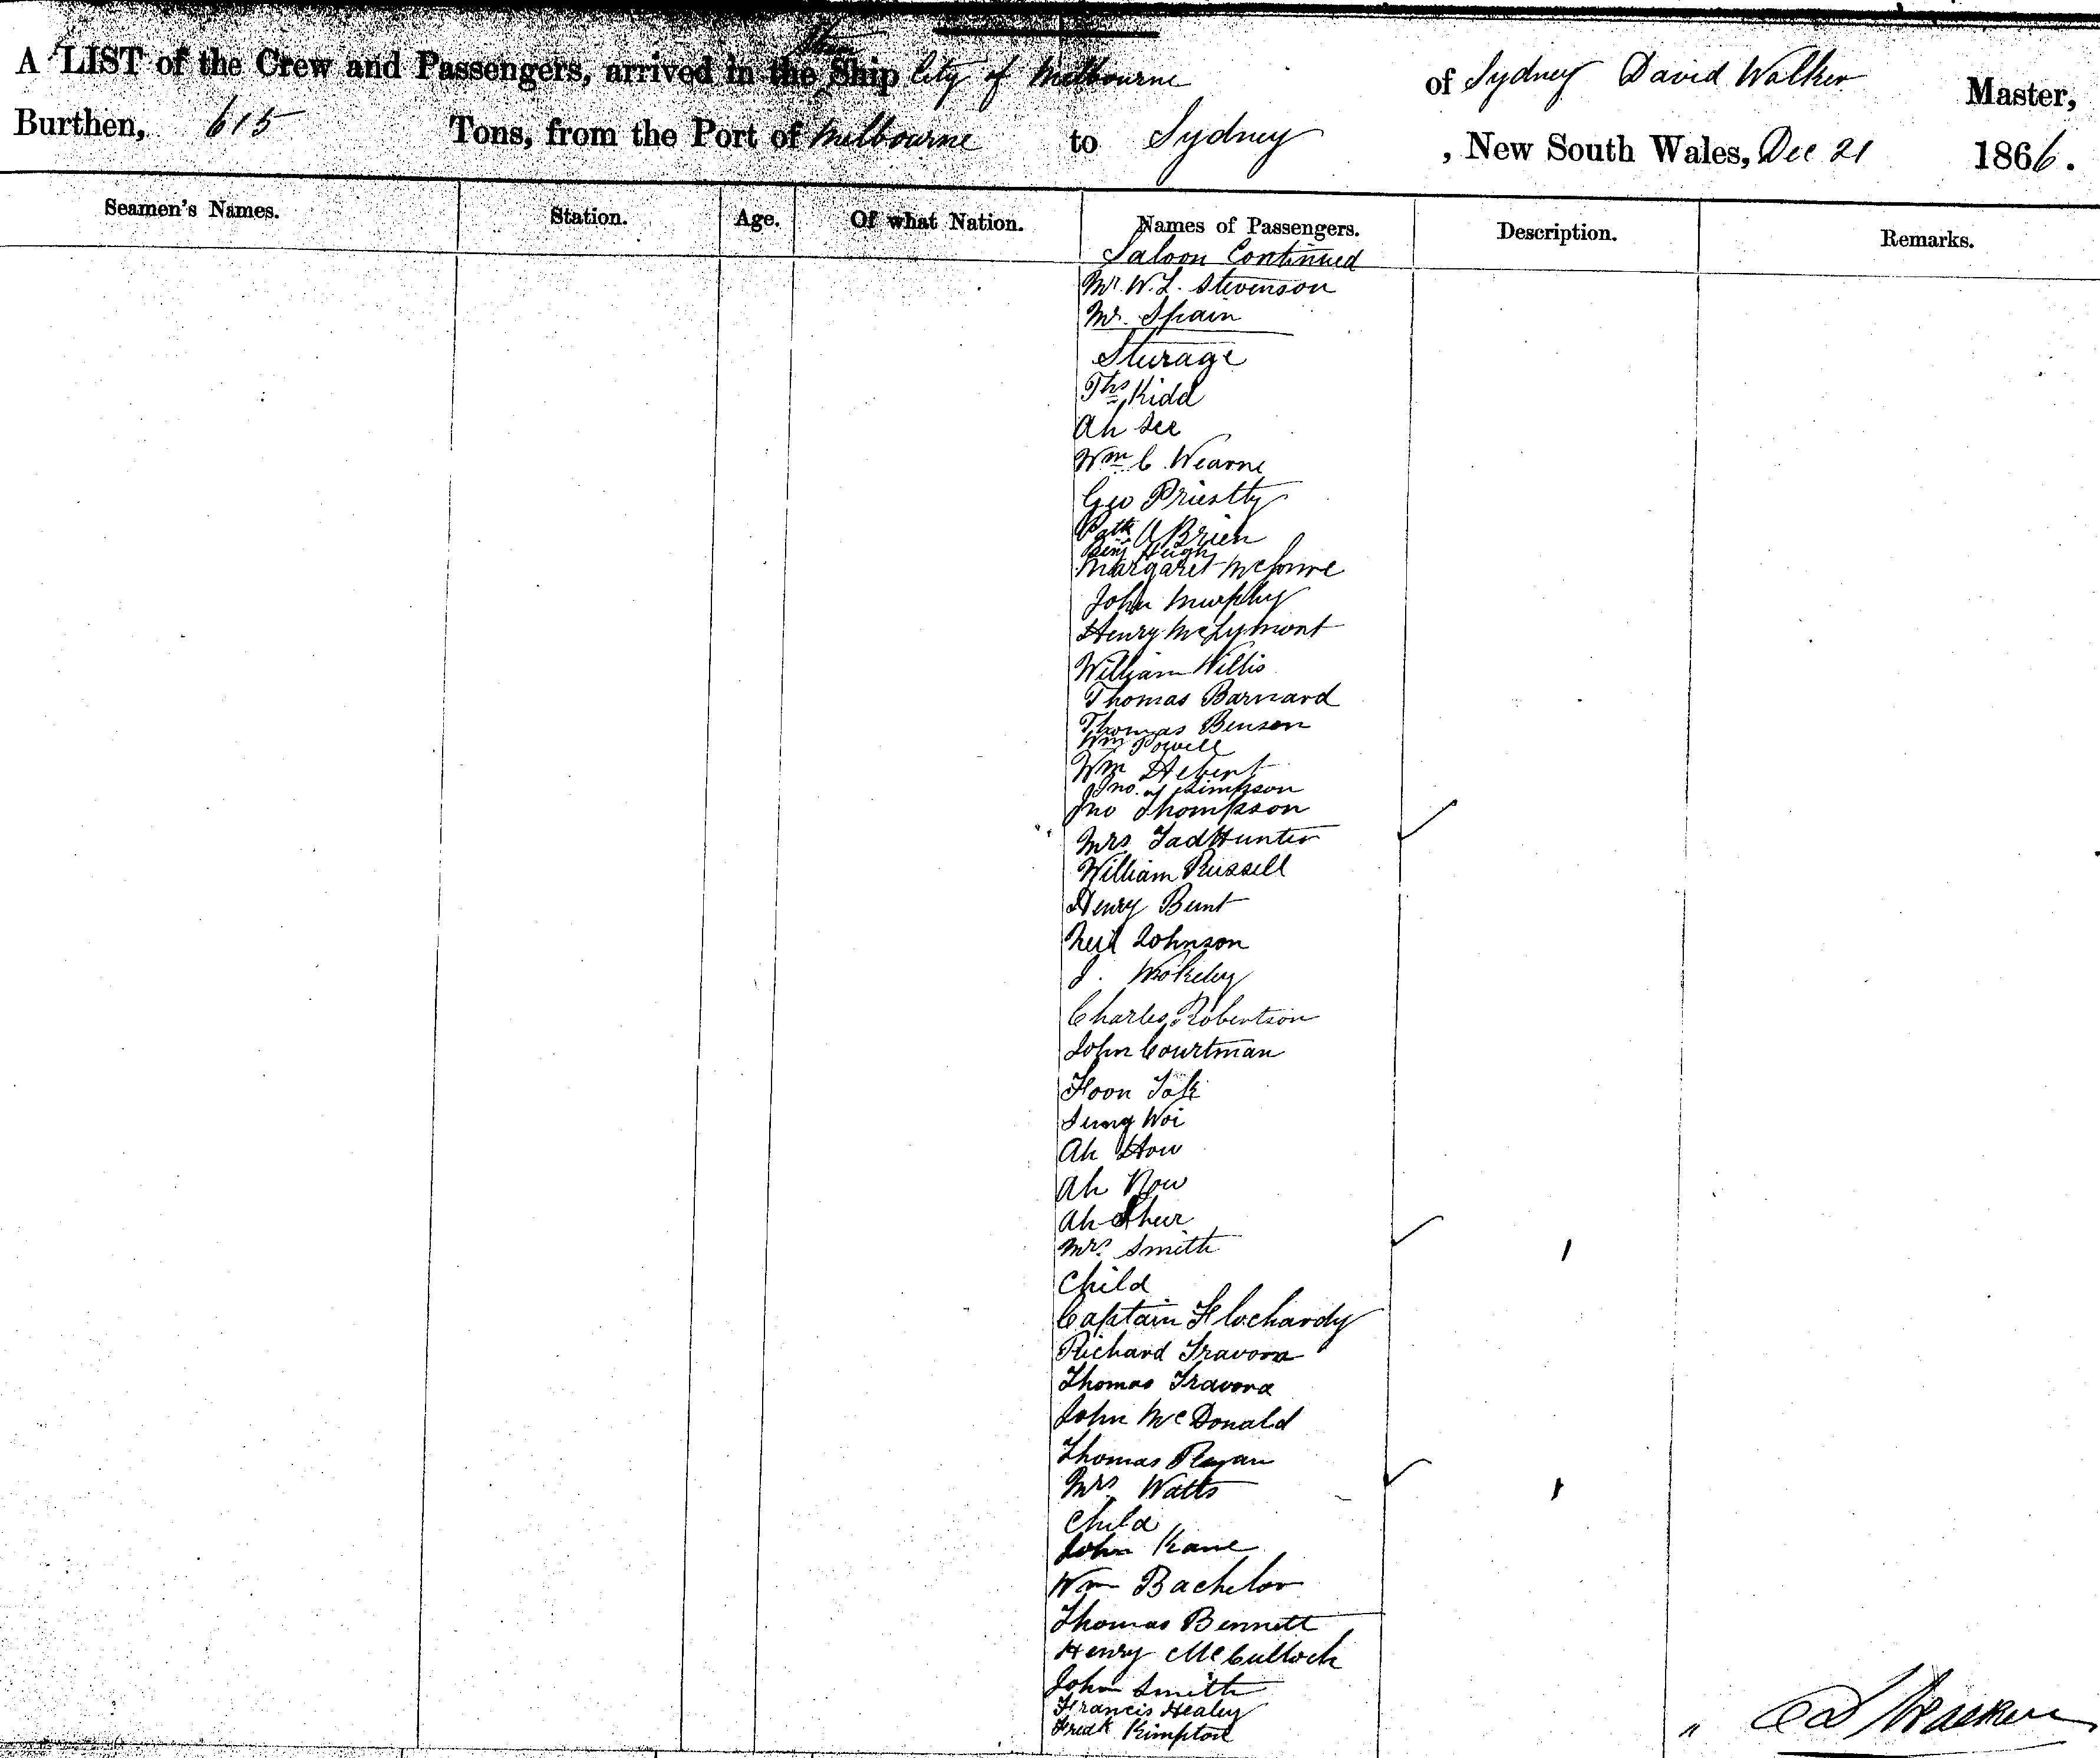 A LIST of the Crew and Passengers, arrived in the Steam Ship City of Melbourne of Sydney David Walker Master,
Burthen, 615 Tons, from the Port of Melbourne to Sydney, New South Wales, Dec 21 1866.
Seamen's Names. Station. Age. Of what Nation. Names of Passengers. Description. Remarks.
Saloon Continued
Mr. W. L. Stevenson
Mr. Spain
Sturage
Ths Kidd
Ah See
Wm C. Wearne
Geo Priestly
Patk O'Brien
Benj Heigh
Margaret
John Murphy
Henry McLymont
William Willis
Thomas Barnard
Thomas Benson
Wm Powell
Wm Hebert
Jno. Simpson
Jno Thompson
Mrs TadHunter
William Russell
Henry Bunt
Neil Johnson
J. Wokeley
Charles Robertson
John Courtman
Foon Tak
Sung Woi
Ah How
Ah Now
Ah Shur
Mrs. Smith
Child
Captain
Richard Travora
Thomas Travora
John McDonald
Thomas Ryan
Mrs. Watts
Child
John Kane
Wm Bachelor
Thomas Bennett
Henry McCulloch
John Smith
Francis Healey
Fredk Kimpton